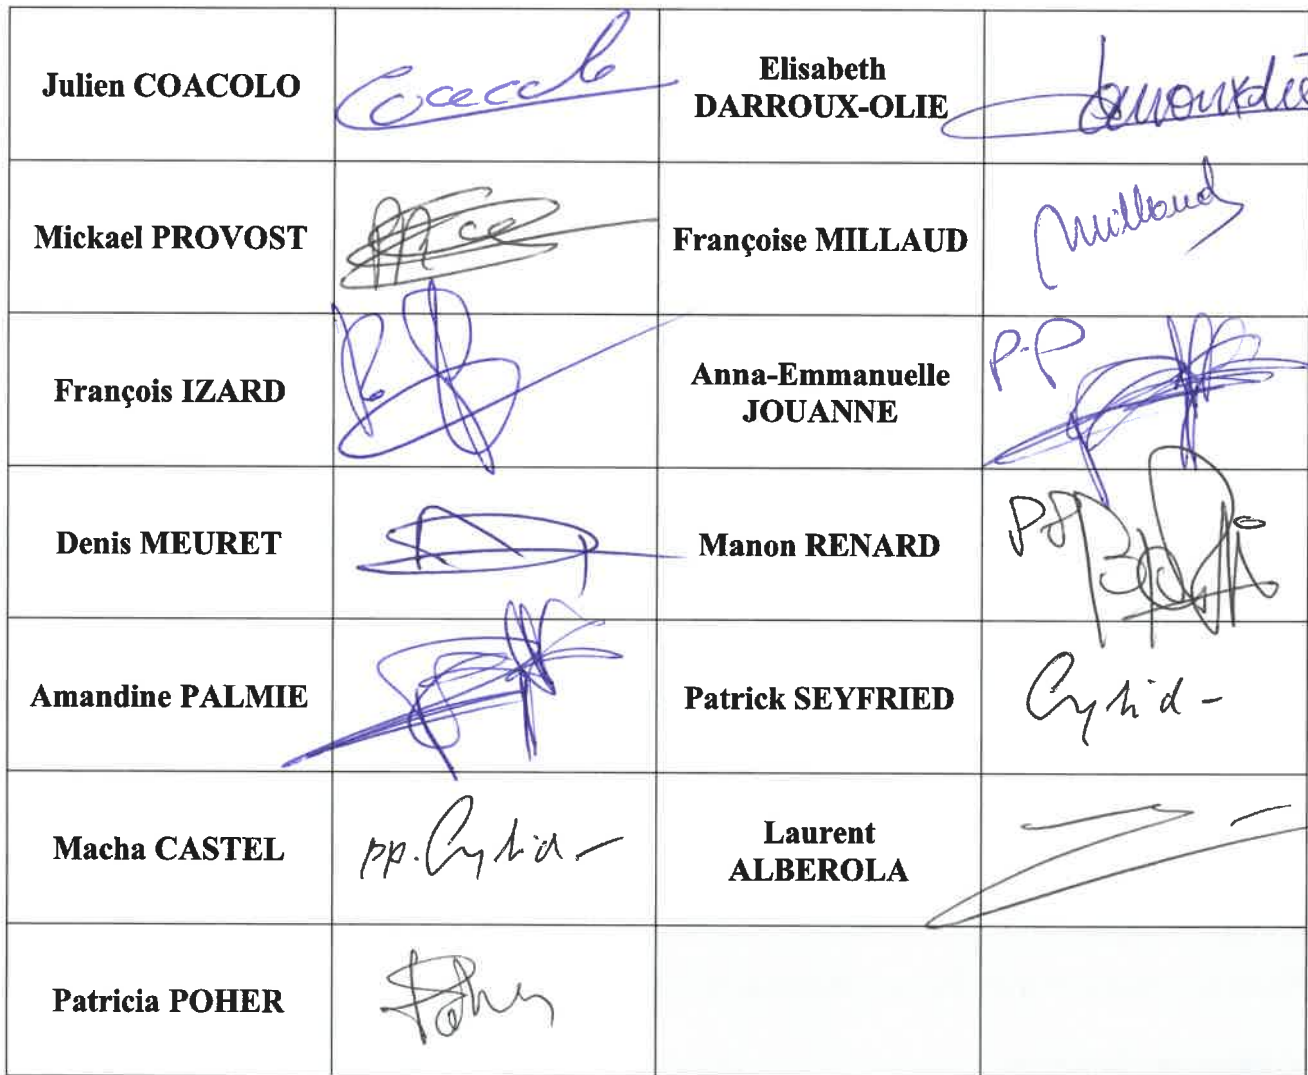 Julien COACOLO
Coacolo
Elisabeth
DARROUX-OLIE
Mickael PROVOST
Françoise MILLAUD
Millaud
François IZARD
Anna-Emmanuelle
JOUANNE
P.P
Denis MEURET
Manon RENARD
PP
Amandine PALMIE
Patrick SEYFRIED
Macha CASTEL
pp.
Laurent
ALBEROLA
Patricia POHER
Poher